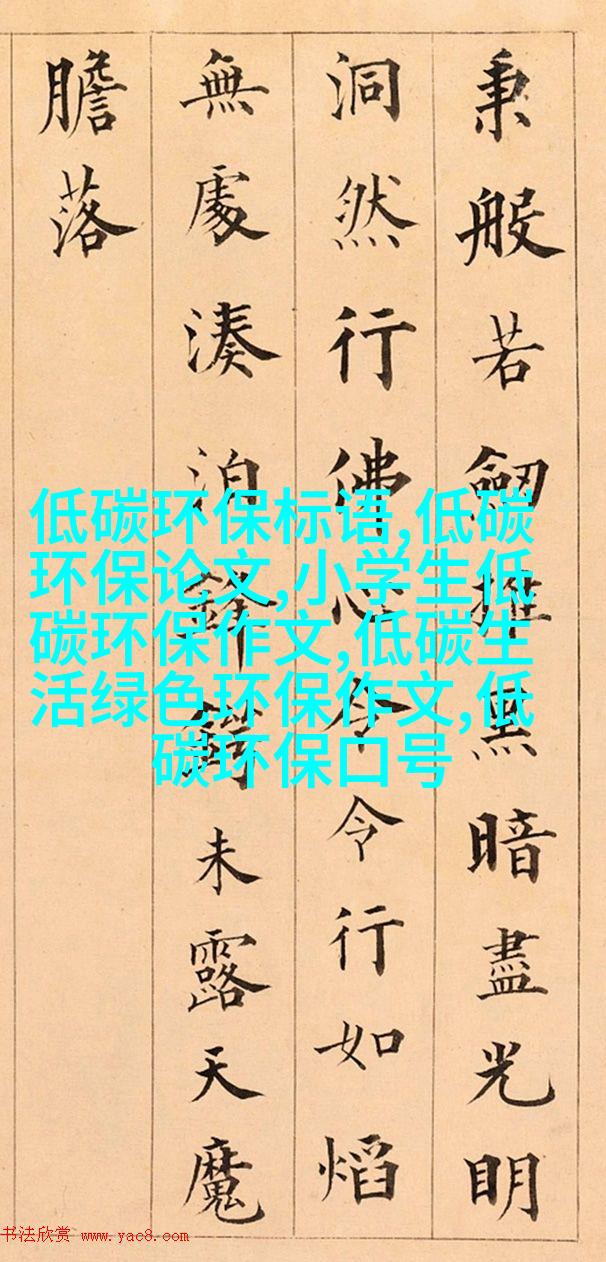 秉般若劍摧黑暗盡光明
洞然行佛心令令行如熖
無處湊泊鋒鍔未露天魔
膽落
低碳环保标语,低碳
环保论文,小学生低
碳环保作文,低碳生
活绿色环保作文,低
碳环保口号
书法欣赏 www.yac8.com